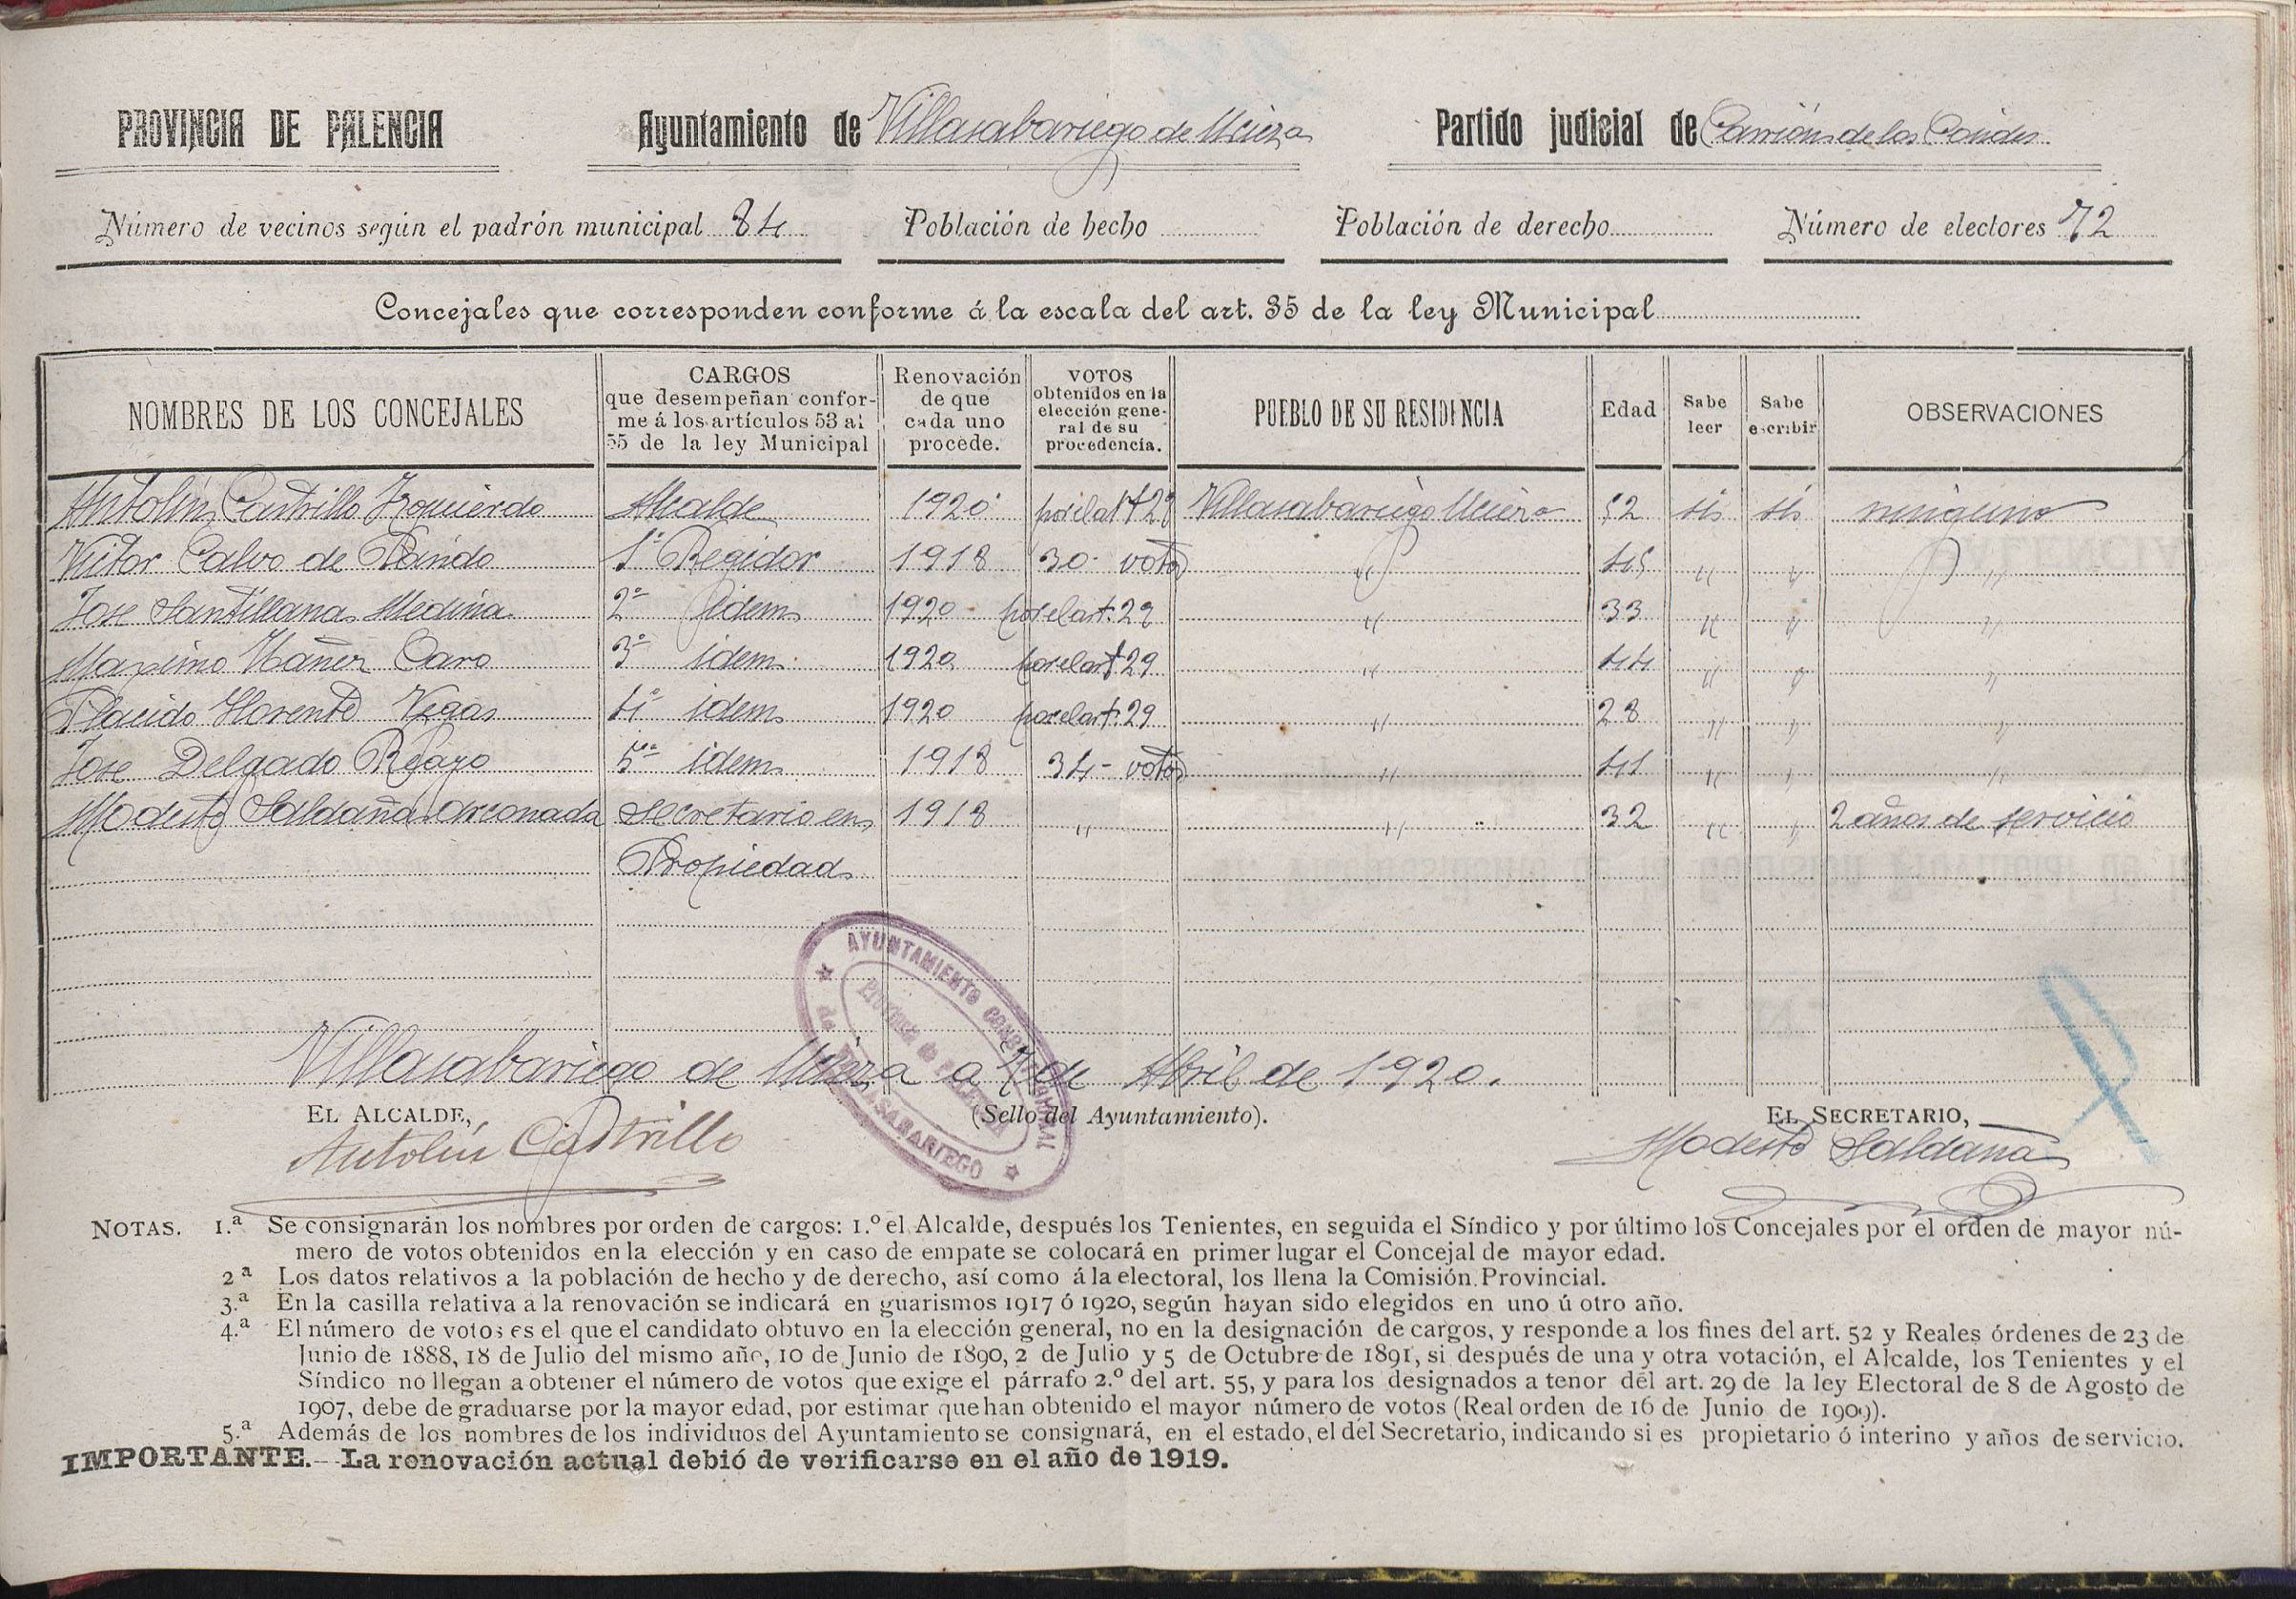 PROVINCIA DE PALENCIA Ayuntamiento de Villasabariego de Ucieza Partido judicial de Carrión de los Condes
Número de vecinos según el padrón municipal 84 Población de hecho Población de derecho Número de electores 72
Concejales que corresponden conforme á la escala del art. 35 de la ley Municipal
NOMBRES DE LOS CONCEJALES
CARGOS
que desempeñan confor-
me á los artículos 53 al
55 de la ley Municipal
Renovación
de que
cada uno
procede.
VOTOS
obtenidos en la
elección gene-
ral de su
procedencia.
PUEBLO DE SU RESIDENCIA
Edad
Sabe
leer
Sabe
escribir
OBSERVACIONES
Antolín Castrillo Izquierdo Alcalde 1920 por el art 29 Villasabariego Ucieza 52 sí sí ninguno
Victor Calvo de Pando 1º Regidor 1918 30 - votos " 45 " " "
Jose Santillana Medina 2º idem 1920 por el art. 29 " 33 " " "
Maximo Ibañez Caro 3º idem 1920 por el art 29 " 44 " " "
Placido Llorente Vegas 4º idem 1920 por el art. 29 " 28 " " "
Jose Delgado Royo 5º idem 1918 34 - votos " 41 " " "
Modesto Saldaña Arconada Secretario en 1918 " " " 32 " " 2 años de servicio
Propiedad
Villasabariego de Ucieza a 7 de Abril de 1920.
AYUNTAMIENTO CONSTITUCIONAL
de VILLASABARIEGO
Provincia de PALENCIA
EL ALCALDE, (Sello del Ayuntamiento). EL SECRETARIO,
Antolín Castrillo Modesto Saldaña
NOTAS. 1.ª Se consignarán los nombres por orden de cargos: 1.º el Alcalde, después los Tenientes, en seguida el Síndico y por último los Concejales por el orden de mayor nú-
mero de votos obtenidos en la elección y en caso de empate se colocará en primer lugar el Concejal de mayor edad.
2ª Los datos relativos a la población de hecho y de derecho, así como á la electoral, los llena la Comisión Provincial.
3.ª En la casilla relativa a la renovación se indicará en guarismos 1917 ó 1920, según hayan sido elegidos en uno ú otro año.
4.ª El número de votos es el que el candidato obtuvo en la elección general, no en la designación de cargos, y responde a los fines del art. 52 y Reales órdenes de 23 de
Junio de 1888, 18 de Julio del mismo año, 10 de Junio de 1890, 2 de Julio y 5 de Octubre de 1891, si después de una y otra votación, el Alcalde, los Tenientes y el
Síndico no llegan a obtener el número de votos que exige el párrafo 2.º del art. 55, y para los designados a tenor del art. 29 de la ley Electoral de 8 de Agosto de
1907, debe de graduarse por la mayor edad, por estimar que han obtenido el mayor número de votos (Real orden de 16 de Junio de 1909).
5.ª Además de los nombres de los individuos del Ayuntamiento se consignará, en el estado, el del Secretario, indicando si es propietario ó interino y años de servicio.
IMPORTANTE.--La renovación actual debió de verificarse en el año de 1919.